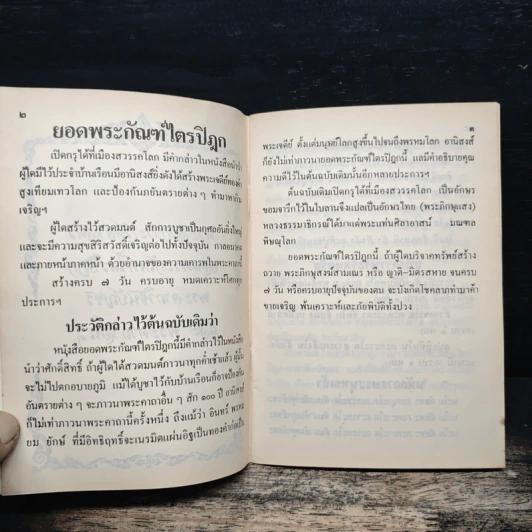 ๒
ยอดพระกัณฑ์ไตรปิฎก
เปิดกรุได้ที่เมืองสวรรคโลก มีคำกล่าวในหนังสือนำว่า
ผู้ใดมีไว้ประจำบ้านเรือนมีอานิสงส์ยิ่งดังได้สร้างพระเจดีย์ทองคำ
สูงเทียมเทวโลก และป้องกันภยันตรายต่าง ๆ ทำมาหากิน
เจริญฯ
ผู้ใดสร้างไว้สวดมนต์ สักการบูชาเป็นกุศลอันยิ่งใหญ่
และจะมีความสุขสิริสวัสดิ์เจริญต่อไปทั้งปัจจุบัน กาลอนาคต
และภายหน้าภาคหน้า ด้วยอำนาจของความเคารพในพระคาถานี้
สร้างครบ ๗ วัน ครบอายุ หมดเคราะห์โศกทุก
ประการฯ
ประวัติกล่าวไว้ต้นฉบับเดิมว่า
หนังสือยอดพระกัณฑ์ไตรปิฎกนี้มีคำกล่าวไว้ในหนังสือ
นำว่าศักดิ์สิทธิ์ ถ้าผู้ใดได้สวดมนต์ภาวนาทุกค่ำเช้าแล้ว ผู้นั้น
จะไม่ไปตกอบายภูมิ แม้ได้บูชาไว้กับบ้านเรือนก็อาจป้องกัน
อันตรายต่าง ๆ จะภาวนาพระคาถาอื่น ๆ สัก ๑๐๐ ปี อานิสงส์
ก็ไม่เท่าภาวนาพระคาถานี้ครั้งหนึ่ง ถึงแม้ว่า อินทร์ พรหม
ยม ยักษ์ ที่มีอิทธิฤทธิ์จะเนรมิตแผ่นอิฐเป็นทองคำก่อเป็น
๓
พระเจดีย์ ตั้งแต่มนุษย์โลกสูงขึ้นไปจนถึงพรหมโลก อานิสงส์
ก็ยังไม่เท่าภาวนายอดพระกัณฑ์ไตรปิฎกนี้ และมีคำอธิบายคุณ
ความดีไว้ในต้นฉบับเดิมนั้นอีกหลายประการฯ
ต้นฉบับเดิมเปิดกรุได้ที่เมืองสวรรคโลก เป็นอักษร
ขอมจารึกไว้ในใบลานจึงแปลเป็นอักษรไทย (พระภิกษุแสง)
หลวงธรรมาธิกรณ์ได้มาแต่พระแท่นศิลาอาสน์ มณฑล
พิษณุโลก
ยอดพระกัณฑ์ไตรปิฎกนี้ ถ้าผู้ใดบริจาคทรัพย์สร้าง
ถวาย พระภิกษุสงฆ์สามเณร หรือ ญาติ-มิตรสหาย จนครบ
๗ วัน หรือครบอายุปัจจุบันของตน จะบังเกิดโชคลาภทำมาค้า
ขายเจริญ พ้นเคราะห์และภัยพิบัติทั้งปวง